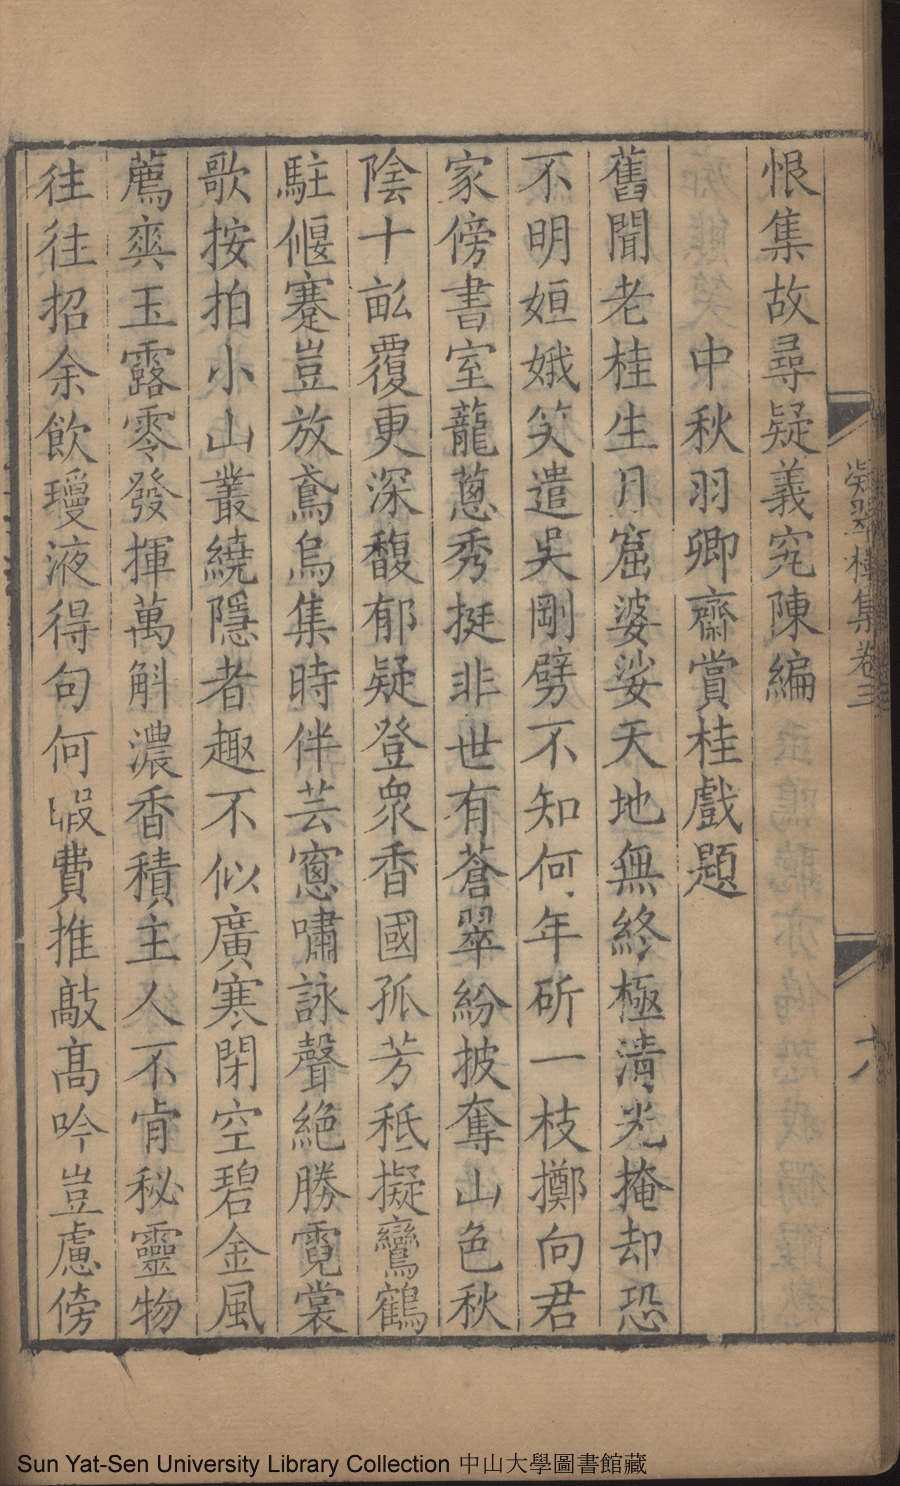 恨集故尋疑義究陳編
中秋羽卿齋賞桂戲題
舊聞老桂生月窟婆娑天地無終極清光掩却恐
不明姮娥笑遣吳剛劈不知何年斫一枝擲向君
家傍書室龍蔥秀挺非世有蒼翠紛披奪山色秋
陰十畝覆更深馥郁疑登衆香國孤芳秪擬鸞鶴
駐偃蹇豈放鳶烏集時伴芸窻嘯詠聲絶勝霓裳
歌按拍小山叢繞隱者趣不似廣寒閉空碧金風
薦爽玉露零發揮萬斛濃香積主人不肯秘靈物
往往招余飲瓊液得句何暇費推敲高吟豈慮傍
凝翠樓集卷三
六
Sun Yat-Sen University Library Collection 中山大學圖書館藏